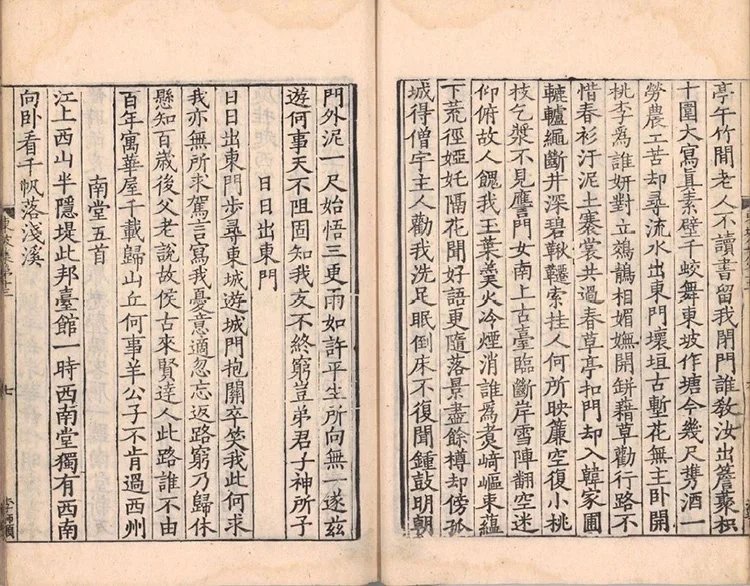 亭午竹間老人不讀書留我閉門誰敎汝出簷藂枳
十圍大寫眞素壁千蛟舞東坡作塘今幾尺擕酒一
勞農工苦却尋流水出東門壞垣古塹花無主卧開
桃李爲誰妍對立鵁鶄相媚嫵開缾藉草勸行路不
惜春衫汙泥土褰裳共過春草亭扣門却入韓家圃
轆轤繩斷井深碧鞦韆索挂人何所映簾空復小桃
枝乞漿不見譍門女南上古臺臨斷岸雪陣翻空迷
仰俯故人餽我玉葉羹火冷煙消誰爲煑崎嶇東蘊
下荒徑婭奼隔花聞好語更隨落景盡餘樽却傍孤
城得僧宇主人勸我洗足眠倒床不復聞鍾鼓明朝
門外泥一尺始悟三更雨如許平生所向無一遂兹
遊何事天不阻固知我友不終窮豈弟君子神所子
日日出東門
日日出東門步尋東城遊城門抱關卒笑我此何求
我亦無所求駕言寫我憂意適忽忘返路窮乃歸休
懸知百歲後父老說故侯古來賢達人此路誰不由
百年寓華屋千載歸山丘何事羊公子不肯過西州
南堂五首
江上西山半隱堤此邦臺館一時西南堂獨有西南
向卧看千帆落淺溪
七